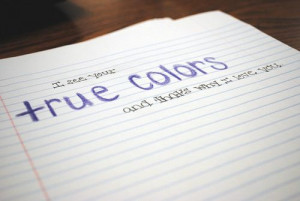 I see your
true colors
and that's why I love you